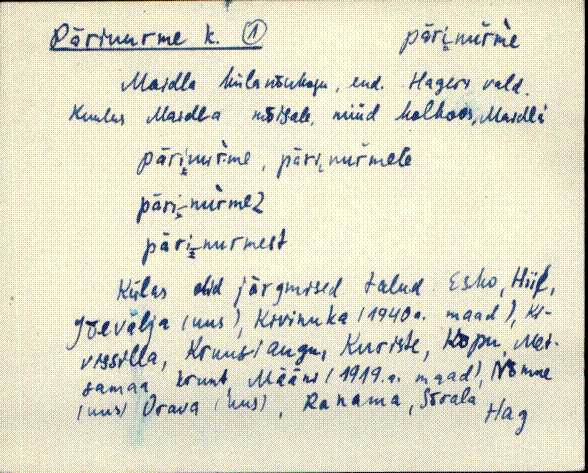 Pärinurme k. ① päri̮nùrme
Maidla külanõukogu, end. Hageri vald.
Kuulus Maidla mõisale, nüüd kolhoos, Maidla
päri̮nùrme, päri̮nurmele
päri̮nùrmeZ
päri̮nurmest
Külas olid järgmised talud Esko, Hiif,
Jõevälja (uus), Kivinuka (1940 a. maad), Ki-
vissilla, Kruusiaugu, Kuriste, Kopu, Mei-
samaa krunt, Määni (1919. a. maad), Nõmme
(uus) Orava (uus), Ranama, Sõrala
Hag